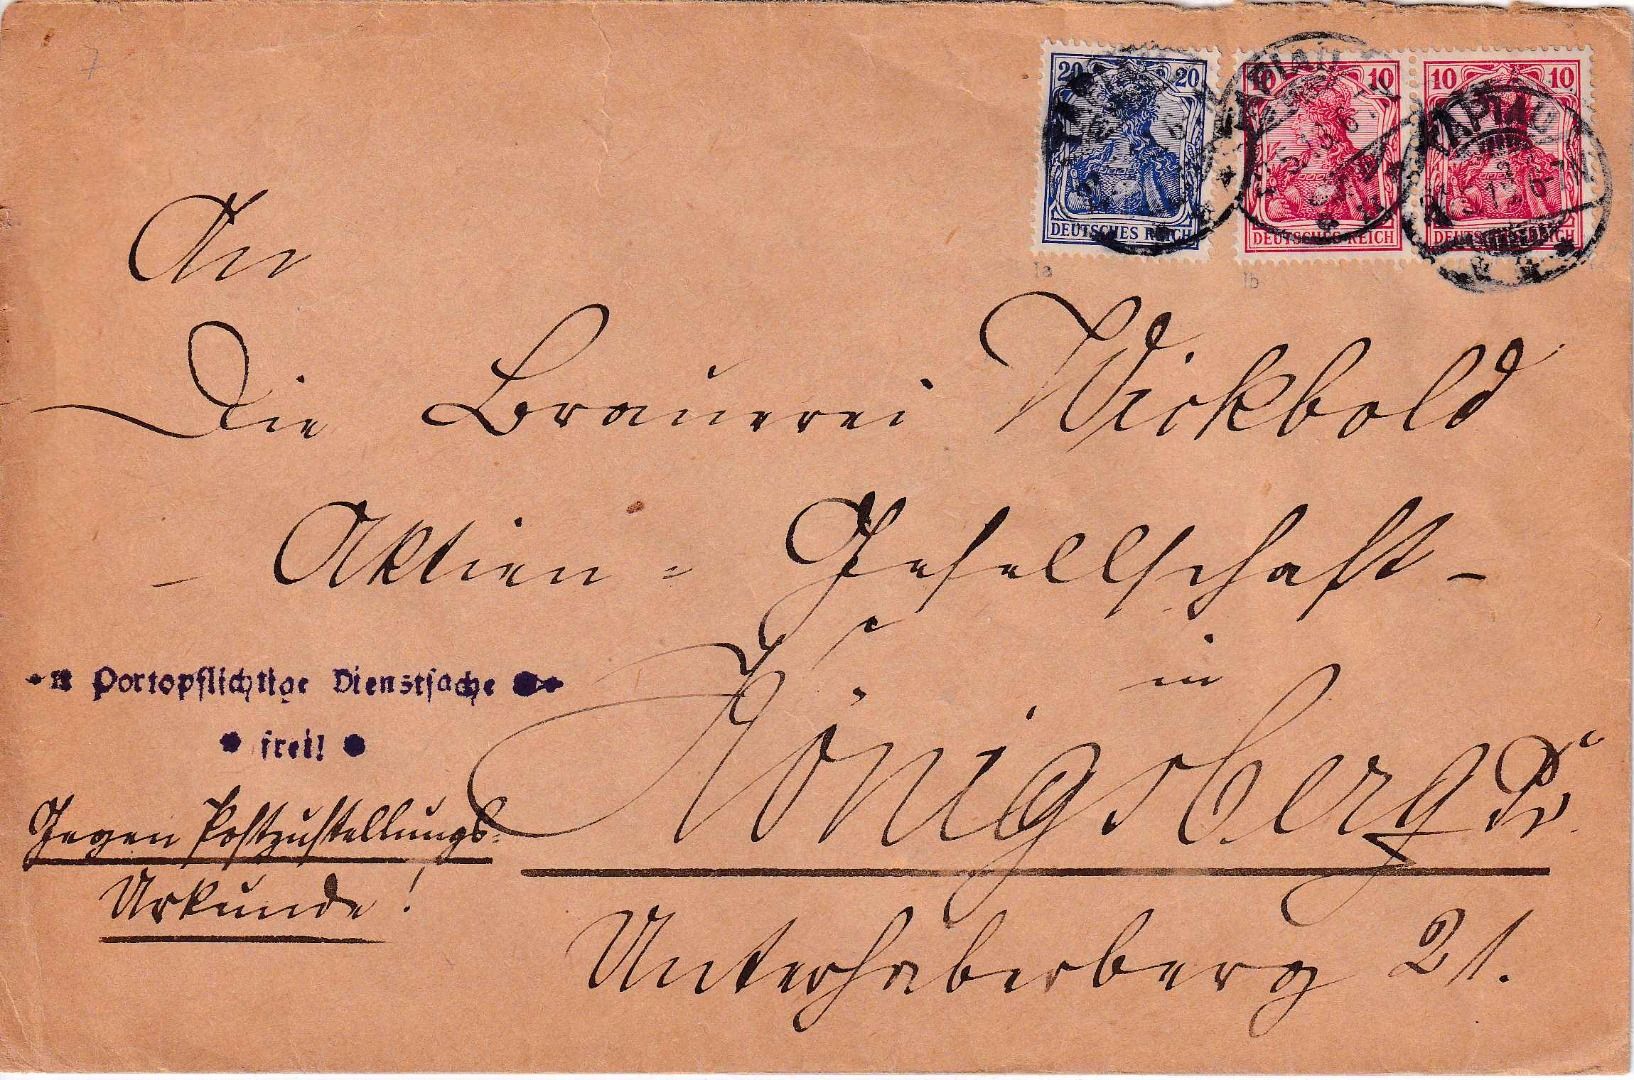 7
20 20
DEUTSCHES REICH
10 10
DEUTSCHES REICH
10 10
DEUTSCHES REICH
TAPIAU
TAPIAU
An
Die Brauerei Wickbold
- Aktien = Gesellschaft -
in
Königsberg Pr.
Unterhaberberg 21.
Portopflichtige Dienstsache
frei!
Gegen Postzustellungs=
Urkunde!
1a
1b